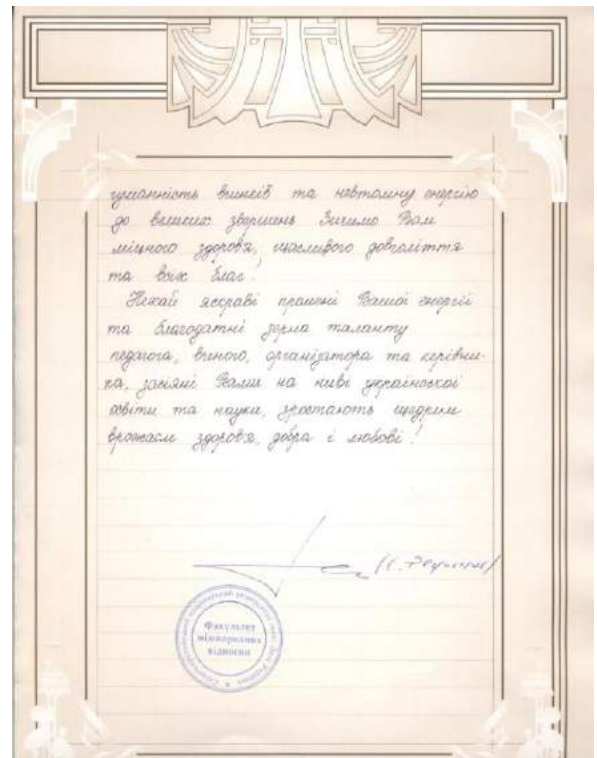 гуманність вчинків та невтомну енергію
до великих звершень Зичимо Вам
міцного здоров'я, щасливого довголіття
та всіх благ!
Нехай яскраві промені Вашої енергії
та благодатні зерна таланту
педагога, вченого, організатора та керівни-
ка, засіяні Вами на ниві української
освіти та науки, зростають щедрим
врожаєм здоров'я, добра і любові!
Факультет
міжнародних
відносин